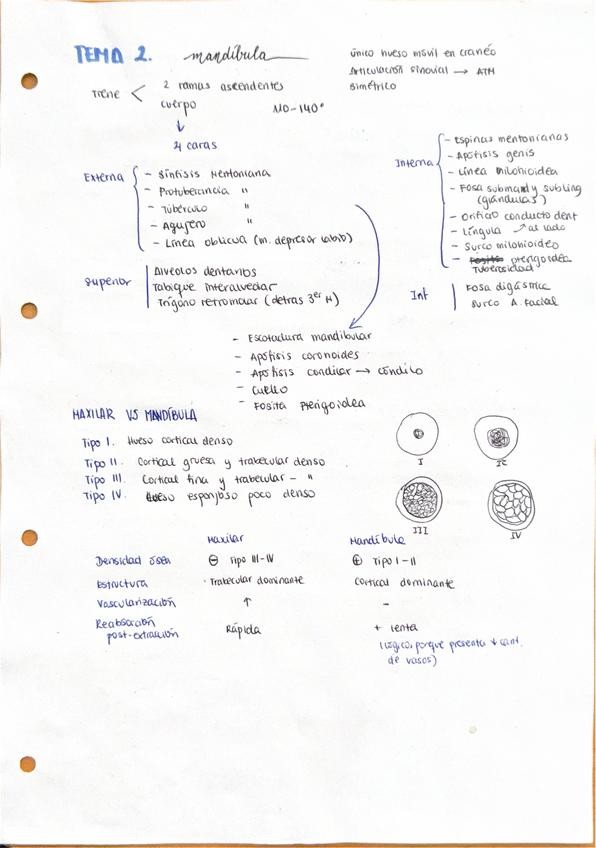 TEMA 2. mandíbula
único hueso móvil en cráneo
Articulación sinovial → ATM
Simétrico
Tiene < 2 ramas ascendentes
cuerpo 110-140°
↓
4 caras
Externa
- Sínfisis Mentoniana
- Protuberancia "
- Tubérculo "
- Agujero "
- Línea oblicua (m. depresor labio)
Interna
- Espinas mentonianas
- Apófisis genis
- Línea milohioidea
- Fosa submand y subling
(glándulas)
- Orificio conducto dent
- Língula ↗ al lado
- Surco milohioideo
- pterigoidea
Tuberosidad
Superior
Alveolos dentarios
Tabique interalveolar
Trígono retromolar (detras 3er M)
Inf
Fosa digástrica
Surco A. Facial
- Escotadura mandibular
- Apófisis coronoides
- Apófisis condilar → cóndilo
- Cuello
- Fosita Pterigoidea
MAXILAR VS MANDÍBULA
Tipo I. Hueso cortical denso
Tipo II. Cortical gruesa y trabecular denso
Tipo III. Cortical fina y trabecular - "
Tipo IV. Hueso esponjoso poco denso
I II
III IV
Maxilar Mandíbula
Densidad ósea ⊖ Tipo III-IV ⊕ Tipo I-II
Estructura · Trabecular dominante Cortical dominante
Vascularización ↑ -
Reabsorción
post-extracción Rápida + lenta
(lógico, porque presenta ↓ cant.
de vasos)